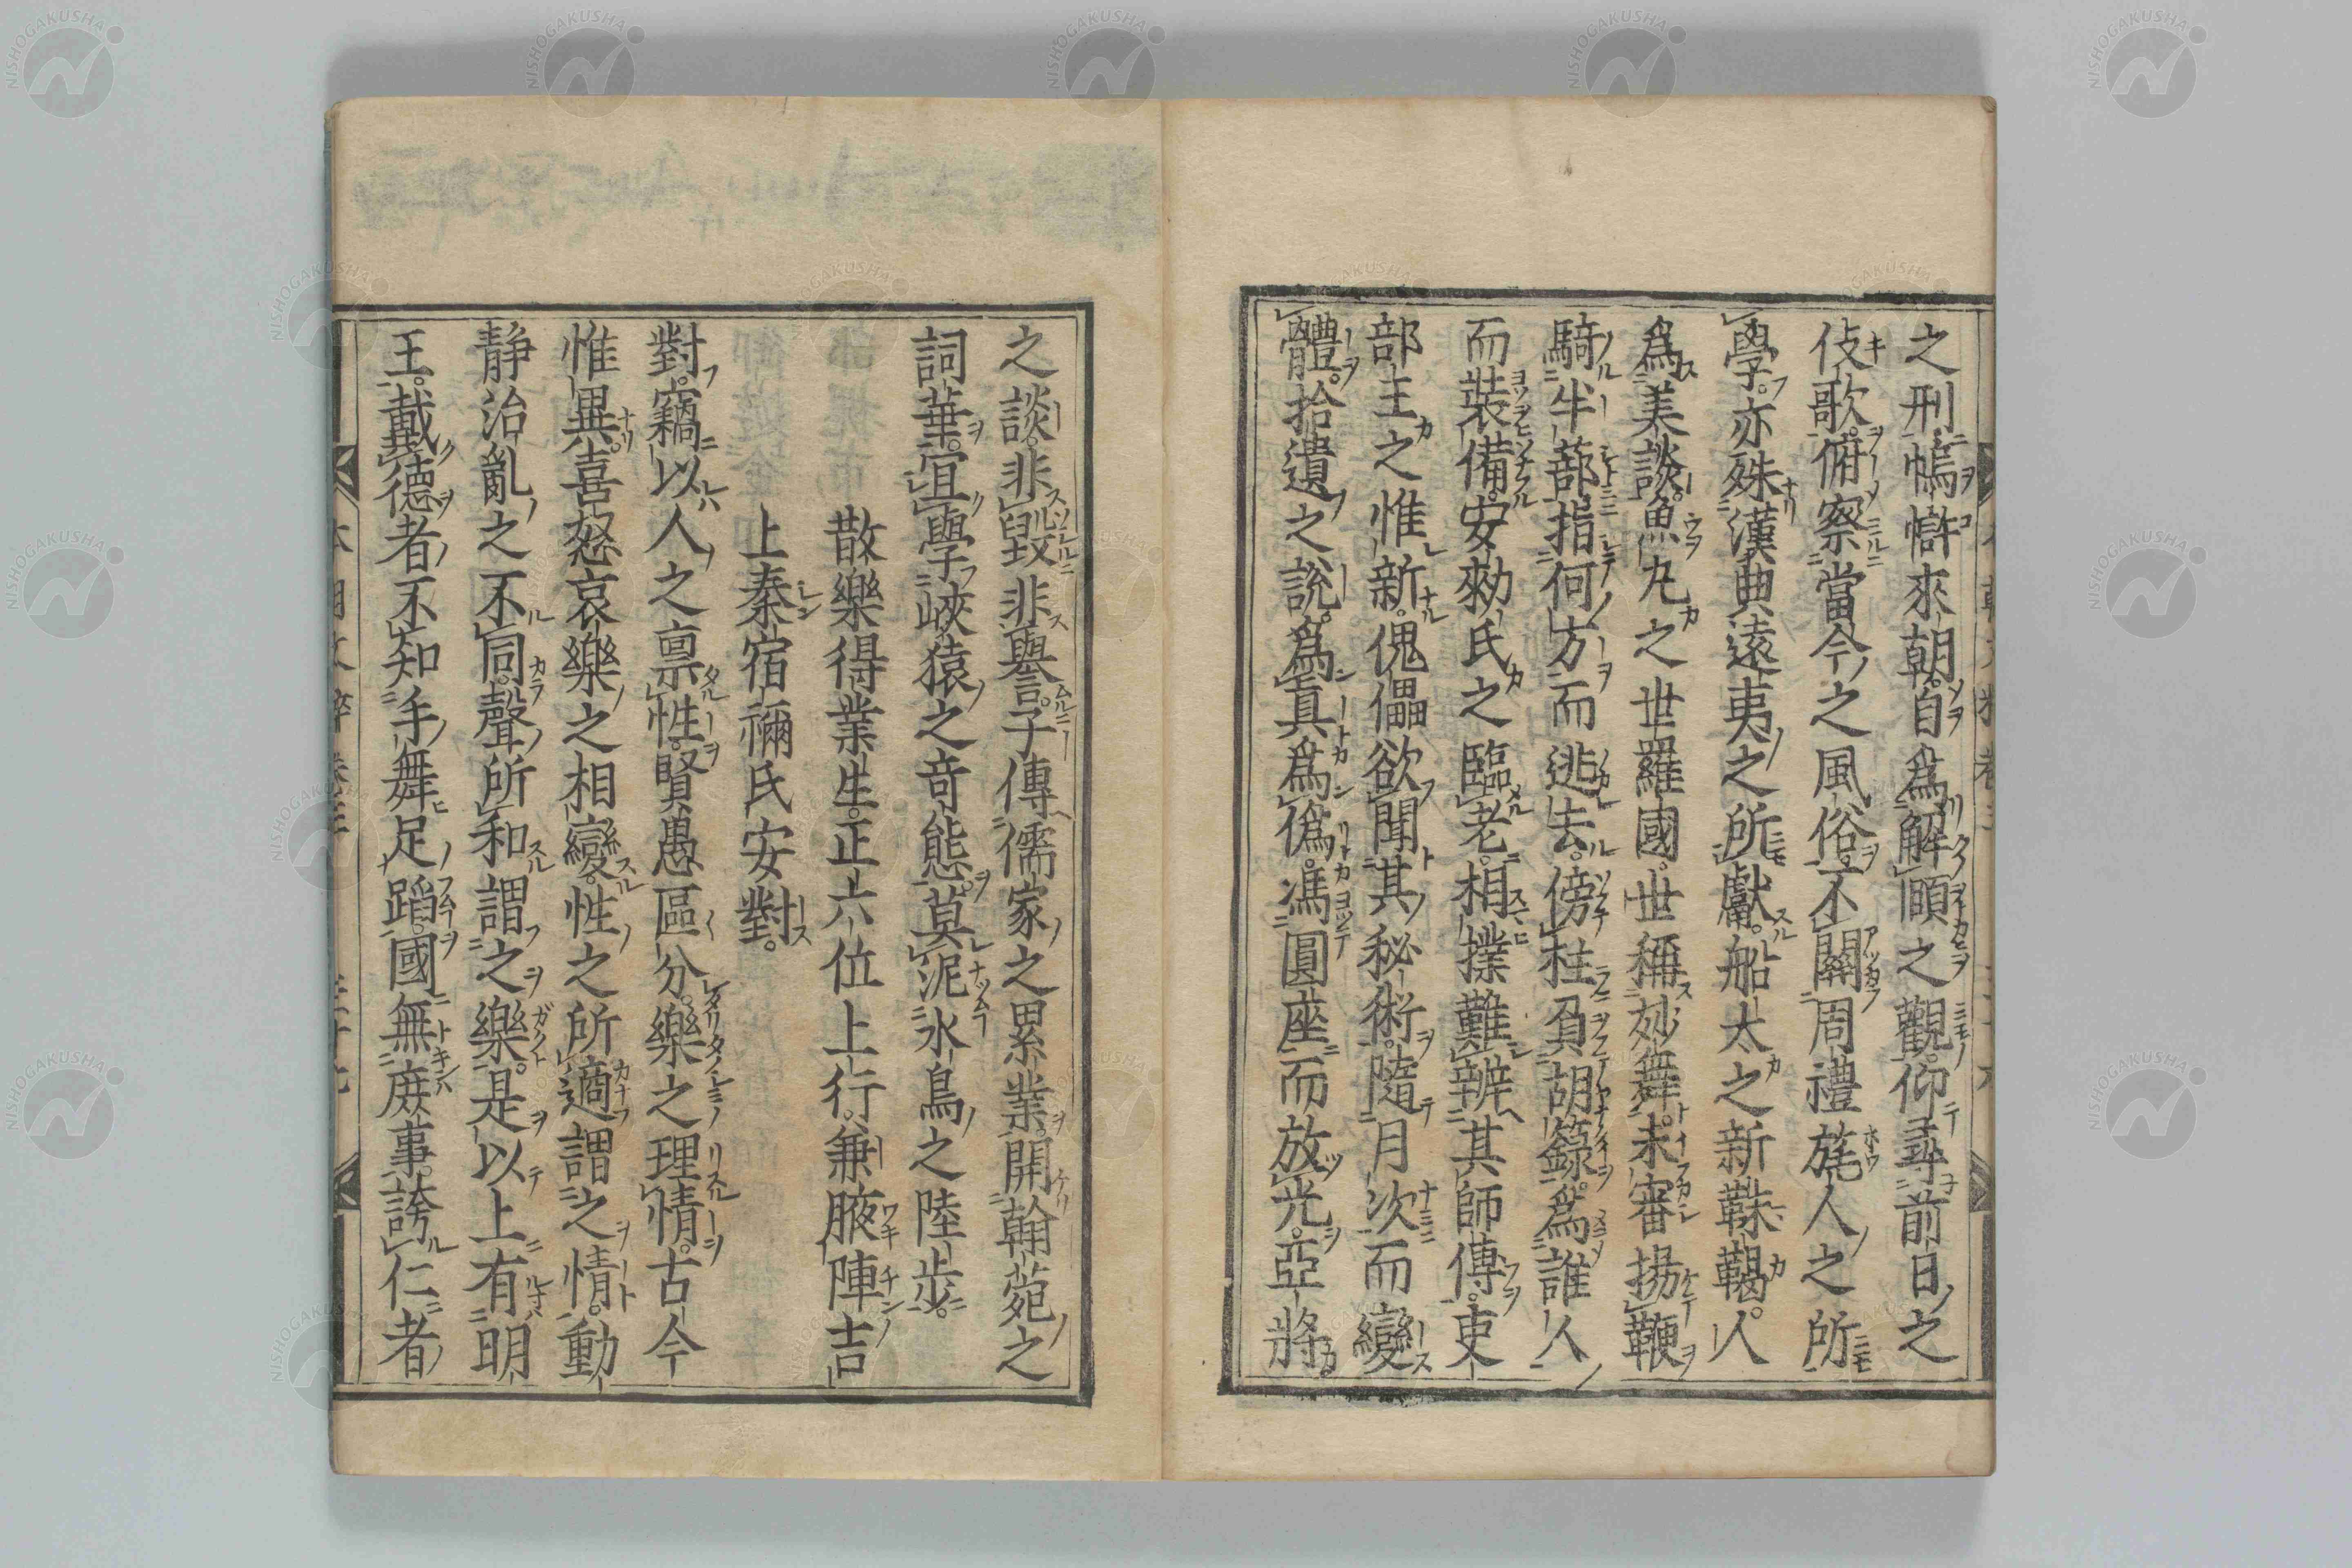 之刑㠶幰來朝自爲解頤之觀仰尋前日之
伎歌俯察當今之風俗不關周禮旄人之所
學亦殊漢典遠夷之所獻船太之新靺鞨人
爲美談魚丸之世羅國世稱妙舞未審揚鞭
騎牛蔀指何方而逃去傍柱負胡籙爲誰人
而裝備安勑氏之臨老相撲難辨其師傳吏
部王之惟新傀儡欲聞其秘術隨月次而變
體拾遺之説爲真爲僞馮圓座而放光亞將
之談非毀非譽子傳儒家之累業開翰菀之
詞華宜學峽猿之奇態莫泥氷鳥之陸歩
散樂得業生正六位上行兼腋陣吉
上秦宿禰氏安對
對竊以人之禀性賢愚區分樂之理情古今
惟異喜怒哀樂之相變性之所適謂之情動
静治亂之不同聲所和謂之樂是以上有明
王戴德者不知手舞足蹈國無庶事誇仁者